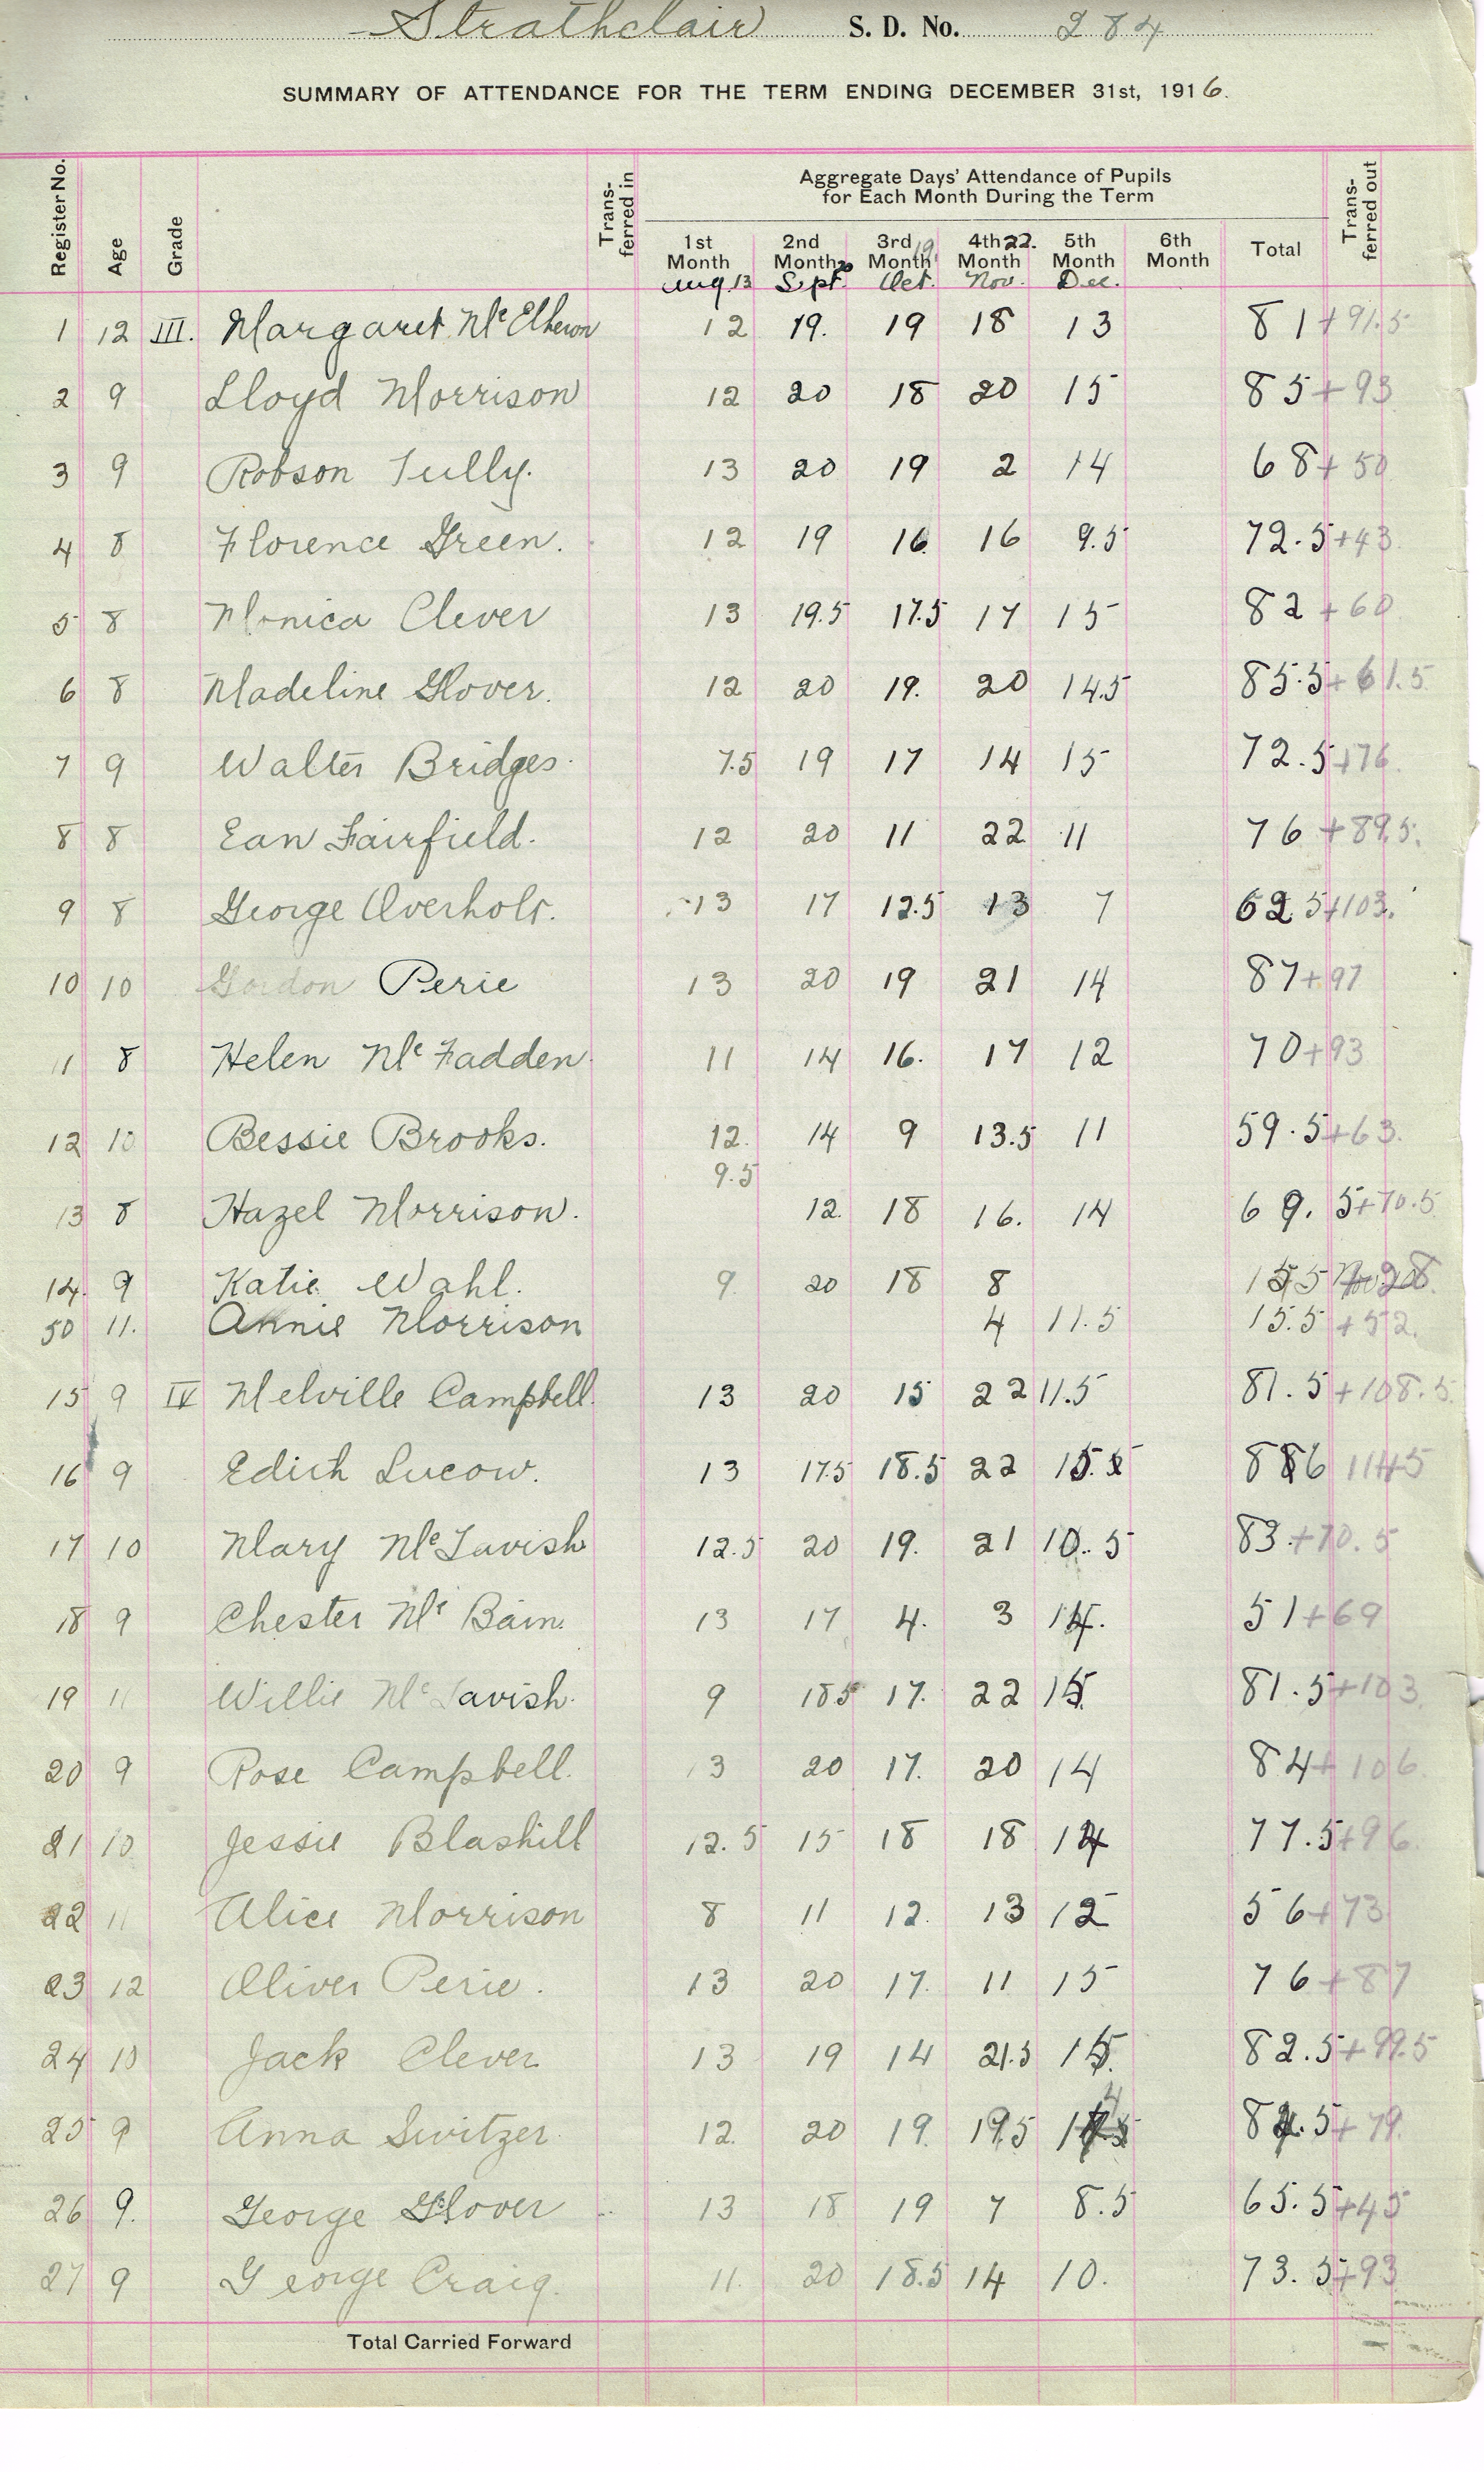 Strathclair S. D. No. 284
SUMMARY OF ATTENDANCE FOR THE TERM ENDING DECEMBER 31st, 1916.
Register No. Age Grade Trans-ferred in Aggregate Days' Attendance of Pupils Trans-ferred out
for Each Month During the Term
1st Month 2nd Month 3rd Month 4th Month 5th Month 6th Month Total
Aug. 13 Sept. 20 Oct. 19 Nov. 22. Dec.
1 12 III. Margaret McElheron 12 19. 19 18 13 81 +91.5
2 9 Lloyd Morrison 12 20 18 20 15 85 +93
3 9 Robson Tully. 13 20 19 2 14 68 +50
4 8 Florence Green. 12 19 16 16 9.5 72.5 +43
5 8 Monica Clever 13 19.5 17.5 17 15 82 +60
6 8 Madeline Glover. 12 20 19. 20 14.5 85.5 +61.5
7 9 Walter Bridges. 7.5 19 17 14 15 72.5 +76.
8 8 Ean Fairfield. 12 20 11 22 11 76 +89.5.
9 8 George Overholt. 13 17 12.5 13 7 62.5 +103.
10 10 Gordon Perie 13 20 19 21 14 87 +97
11 8 Helen McFadden 11 14 16. 17 12 70 +93
12 10 Bessie Brooks. 12. 14 9 13.5 11 59.5 +63.
9.5
13 8 Hazel Morrison. 12. 18 16. 14 69.5 +70.5
14. 9 Katie Wahl. 9 20 18 8
50 11. Annie Morrison 4 11.5 15.5 +52.
15 9 IV Melville Campbell. 13 20 15 22 11.5 81.5 +108.5
16 9 Edith Lucow. 13 17.5 18.5 22 15. 86 114.5
17 10 Mary McTavish 12.5 20 19. 21 10.5 83. +70.5
18 9 Chester McBain. 13 17 4. 3 14. 51 +69
19 11 Willie McTavish. 9 18.5 17. 22 15. 81.5 +103
20 9 Rose Campbell. 13 20 17. 20 14 84 +106.
21 10 Jessie Blashill 12.5 15 18 18 14 77.5 +96.
22 11 Alice Morrison 8 11 12. 13 12 56 +73
23 12 Oliver Perie. 13 20 17. 11 15 76 +87
24 10 Jack Clever 13 19 14 21.5 15. 82.5 +99.5
25 9 Anna Switzer. 12. 20 19. 19.5 14 84.5 +79.
26 9. George Glover 13 18 19 7 8.5 65.5 +45
27 9 George Craig. 11. 20 18.5 14 10. 73.5 +93
Total Carried Forward